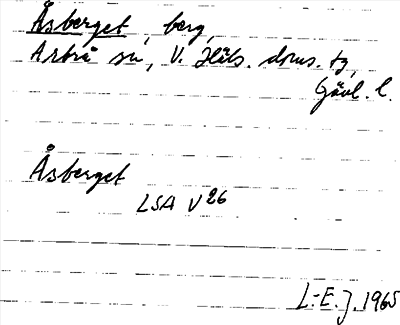 Åsberget, berg,
Arbrå sn, V. Häls. doms. tg,
Gävl. l.
Åsberget
LSA V26
L-E. J. 1965